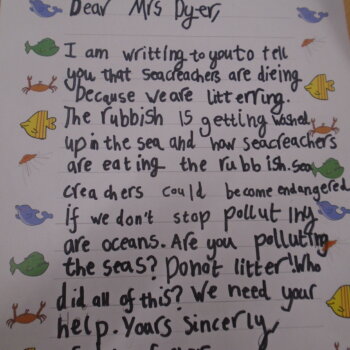 Dear Mrs Dyer,
I am writting to you to tell
you that seacreachers are dieing
Because we are litterring.
The rubbish is getting washed
up in the sea and how seacreachers
are eating the rubbish. Sea
creachers could become endangered
if we don't stop polluting
are oceans. Are you polluting
the seas? Do not litter! Who
did all of this? We need your
help. Yours sincerly,